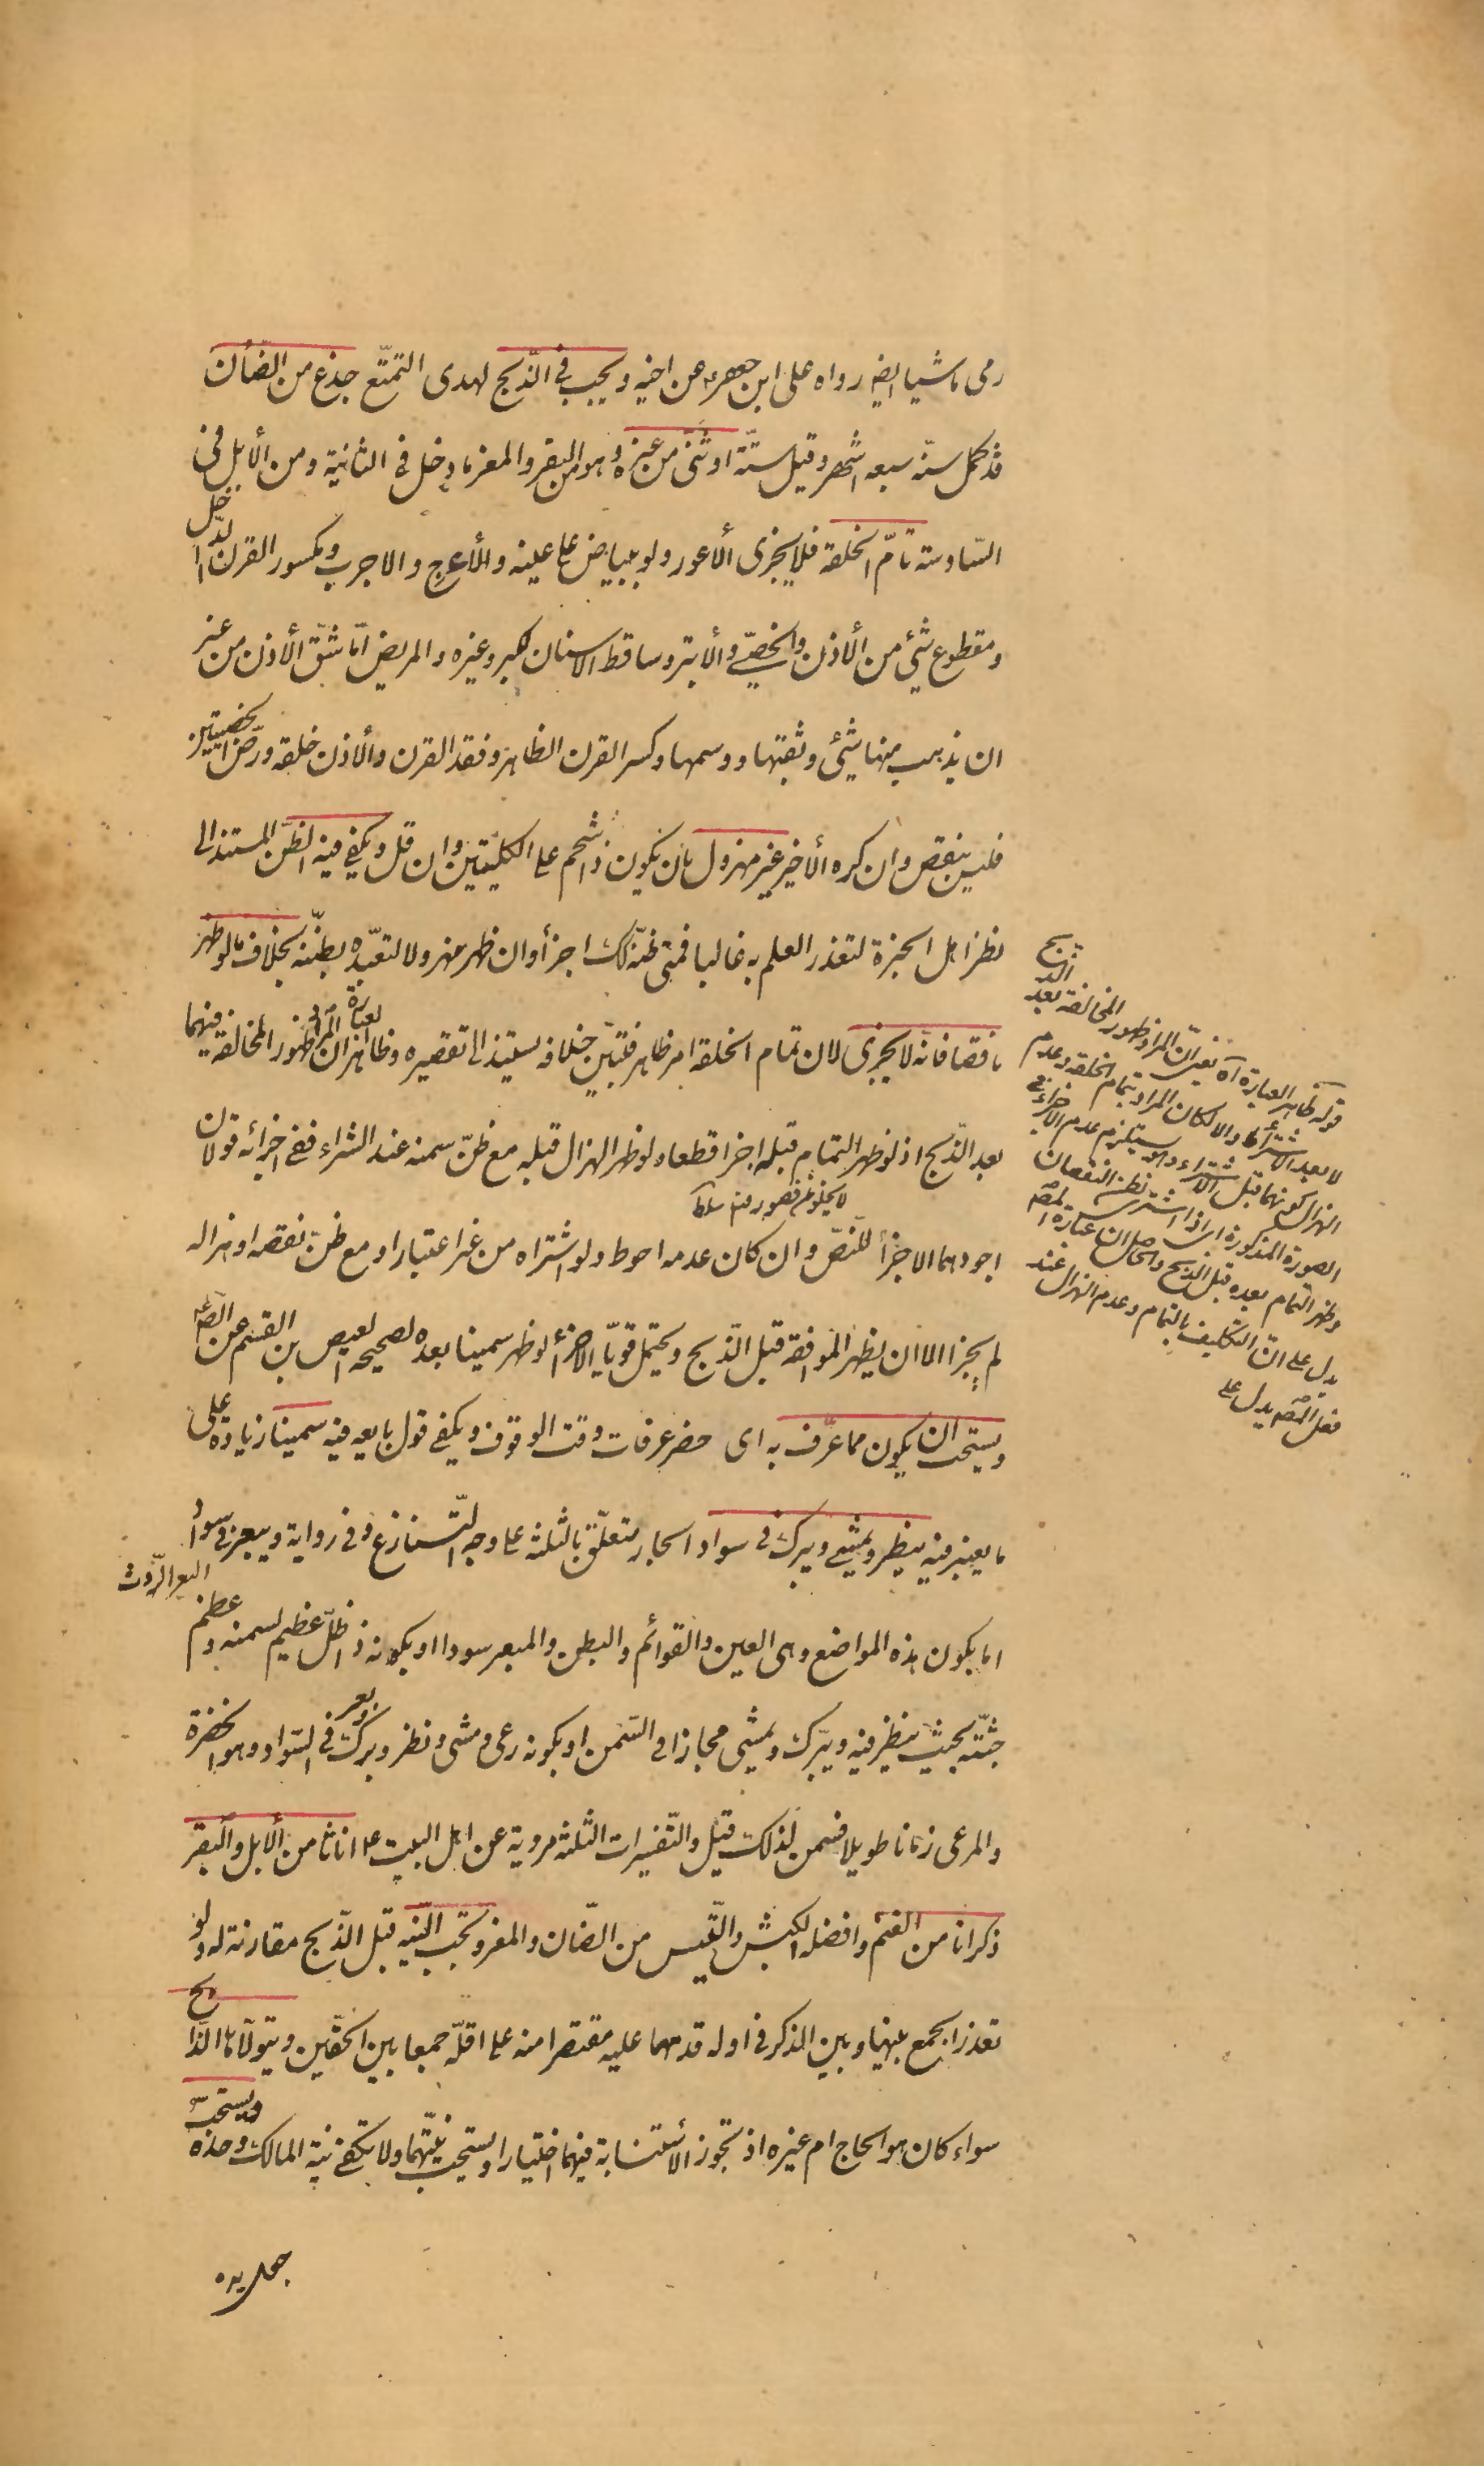 رمى ماشيا ايضا رواه على ابن جعفر عن اخيه ويجب فى الذّبح لهدى التمتّع جذع من الضّأن
قد كمل سنّه سبعه اشهر وقيل ستّة او ثنّى من غيره وهو من البقر والمعز ما دخل فى الثانية ومن الأبل فى
السّادسة تامّ الخلقة فلا يجزى الأعور ولو ببياض على عينه والأعرج والاجرب ومكسور القرن الدّاخل
ومقطوع شئ من الأذن والخصىّ والأبتر وساقط الاسنان لكبر وغيره والمريض امّا شقّ الأذن من غير
ان يذهب منها شئ وثقبها ووسمها وكسر القرن الظاهر وفقد القرن والأذن خلقه ورضّ الخصيتين
فليس بنقص وان كره الأخير غير مهزول بان يكون ذا شحم على الكليتين وان قل ويكفى فيه الظنّ المستند الى
نظر اهل الخبرة لتعذر العلم به غالبا فمتى ظنّه كك اجزأ وان ظهر مهزولا لتعبّده بظنّه بخلاف ما لو ظهر
ناقصا فانه لا يجزى لان تمام الخلقة امر ظاهر فتبيّن خلافه يستند الى تقصيره وظاهر العبارة ان المراد ظهور المخالفة فيهما
بعد الذّبح اذ لو ظهر التمام قبله اجزا قطعا ولو ظهر الهزال قبله مع ظنّ سمنه عند الشراء ففى اجزائه قولان
اجودهما الاجزأ للنّصّ وان كان عدمه احوط ولو اشتراه من غير اعتبار او مع ظنّ نقصه او هزاله
لم يجز الا ان يظهر الموافقة قبل الذّبح ويحتمل قويّا الاجزأ لو ظهر سمينا بعده لصحيحه العيص بن القسم عن الصّ ع
ويستحب ان يكون مما عرّف به اى حضر عرفات وقت الوقوف ويكفى قول بايعه فيه سمينا زيادة على
ما يعتبر فيه ينظر ويمشى ويبرك فى سواد الجار متعلّق بالثلثة على وجه التّنازع وفى رواية ويبعر فى سواد
البعر الرّوث
اما بكون هذه المواضع وهى العين والقوائم والبطن والمبعر سودا او بكونه ذا ظلّ عظيم لسمنه وعظم
جثّته بحيث ينظر فيه ويبرك ويمشى مجازا فى السّمن او بكونه رعى ومشى ونظر وبرك وبعر فى السّواد وهو الخضرة
والمرعى زمانا طويلا فسمن لذلك قيل والتّفسيرات الثلثة مروية عن اهل البيت ع اناثا من الأبل والبقر
ذكرانا من الغنم وافضله الكبش والتّيس من الضّان والمعز وتجب النّيّه قبل الذّبح مقارنة له ولو
تعذر الجمع بينها وبين الذكر فى اوله قدمها عليه مقتصرا منه على اقلّه جمعا بين الحقّين ويتولّاها الذّابح
سواء كان هو الحاج ام غيره اذ تجوز الأستنابة فيهما اختيارا ويستحب نيّتهما ولا تكفى نية المالك وحده ويستحبّ
جعل يده
لا يخلو عن قصور منه سلطا
قوله ظاهر العبارة آه يعنى انّ المراد ظهور المخالفة بعد الذبح
لا بعد الاشتراء والا لكان المراد بتمام الخلقة وعدم
الهزال كونهما قبل الاشتراء وهو يستلزم عدم الاجزاء فى
الصورة المذكورة اى اذا اشترى بظن النقصان
وظهر التمام بعده قبل الذبح والحاصل ان عبارة المصّ
يدل على انّ التكليف بالتمام وعدم الهزال عند
فعل المصّ يدل على